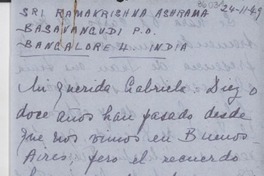 SRI RAMAKRISHNA ASHRAMA 24-11-49
BASAVANGUDI P.O.
BANGALORE 4 INDIA
Mi querida Gabriela: Diez o
doce años han pasado desde
que nos vimos en Buenos
Aires, pero el recuerdo